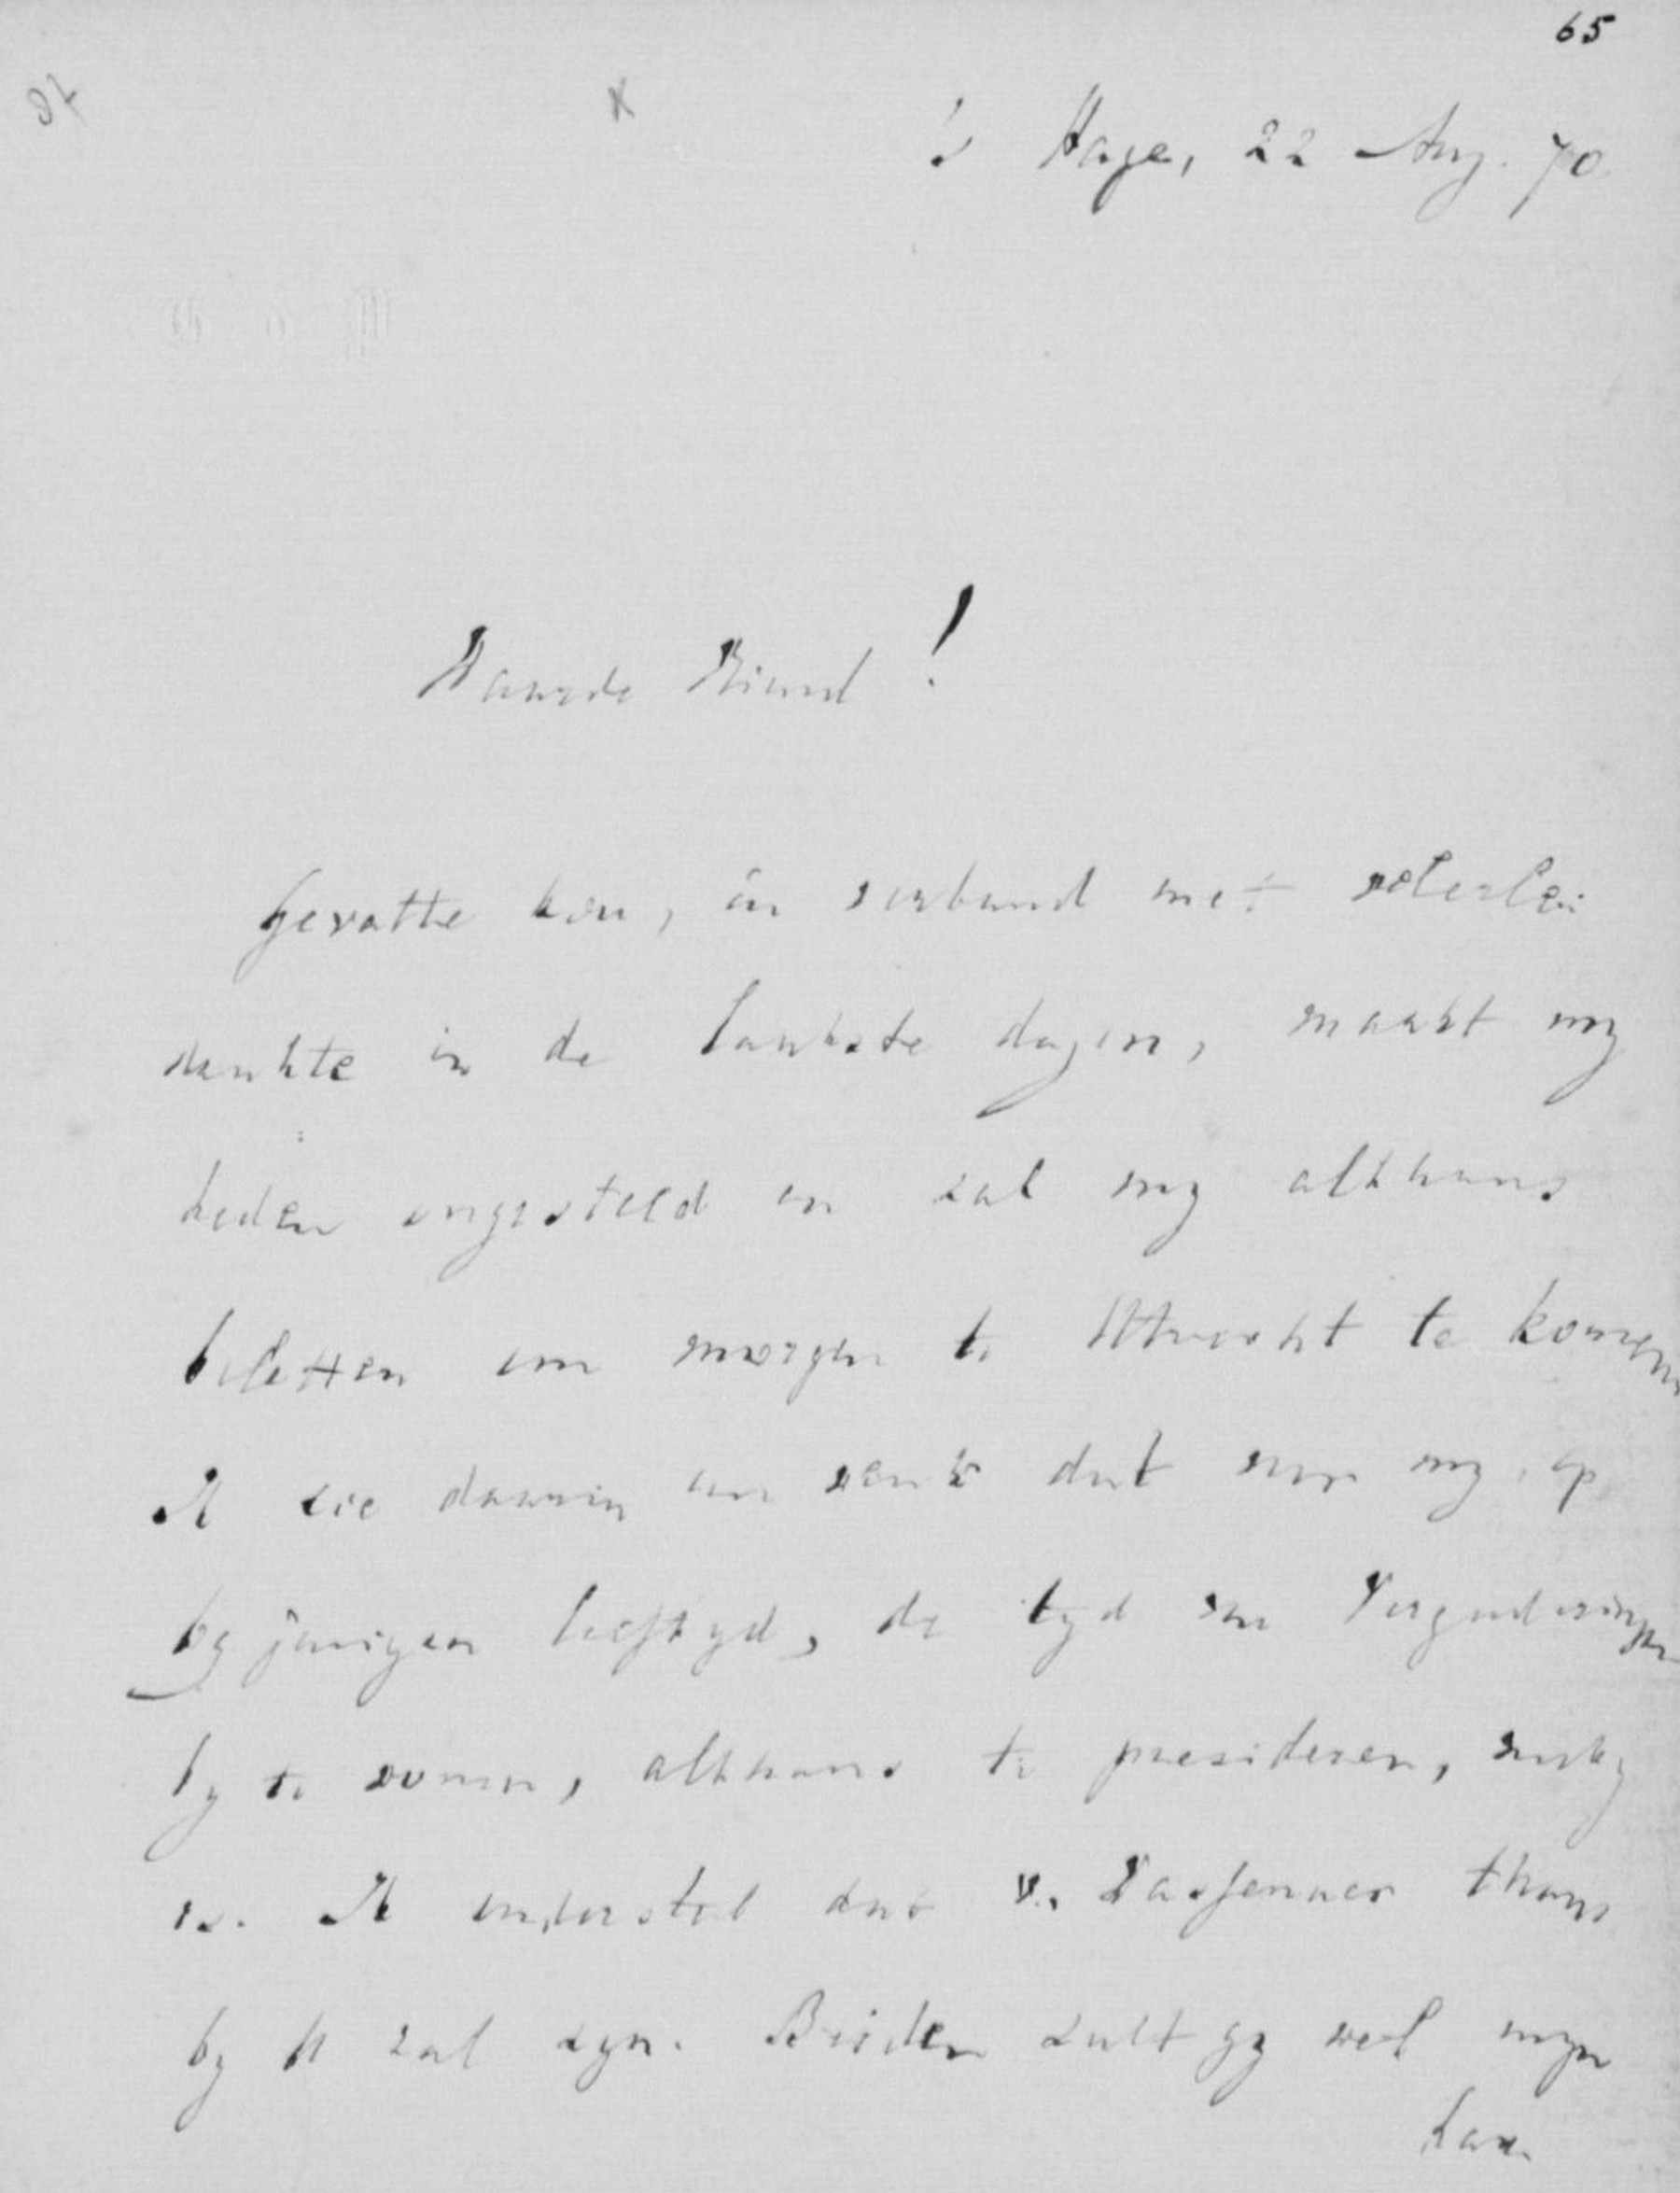 65
's Hage, 22 Aug. 70.
Waarde Vriend!
Gevatte kou, in verband met velerlei
drukte in de laatste dagen, maakt my
heden ongesteld en zal my althans
beletten om morgen te Utrecht te komen
Ik zie daarin een wenk dat voor my, op
bejarigen leeftyd, de tyd van Vergaderingen
by te wonen, althans te presideren, voorby
is. Ik onderstel dat v. Wassenaer thans
by U zal zyn. Beiden zult gy wel myn